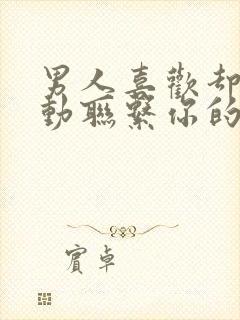 男人喜歡却
動聯繫你的
賓卓